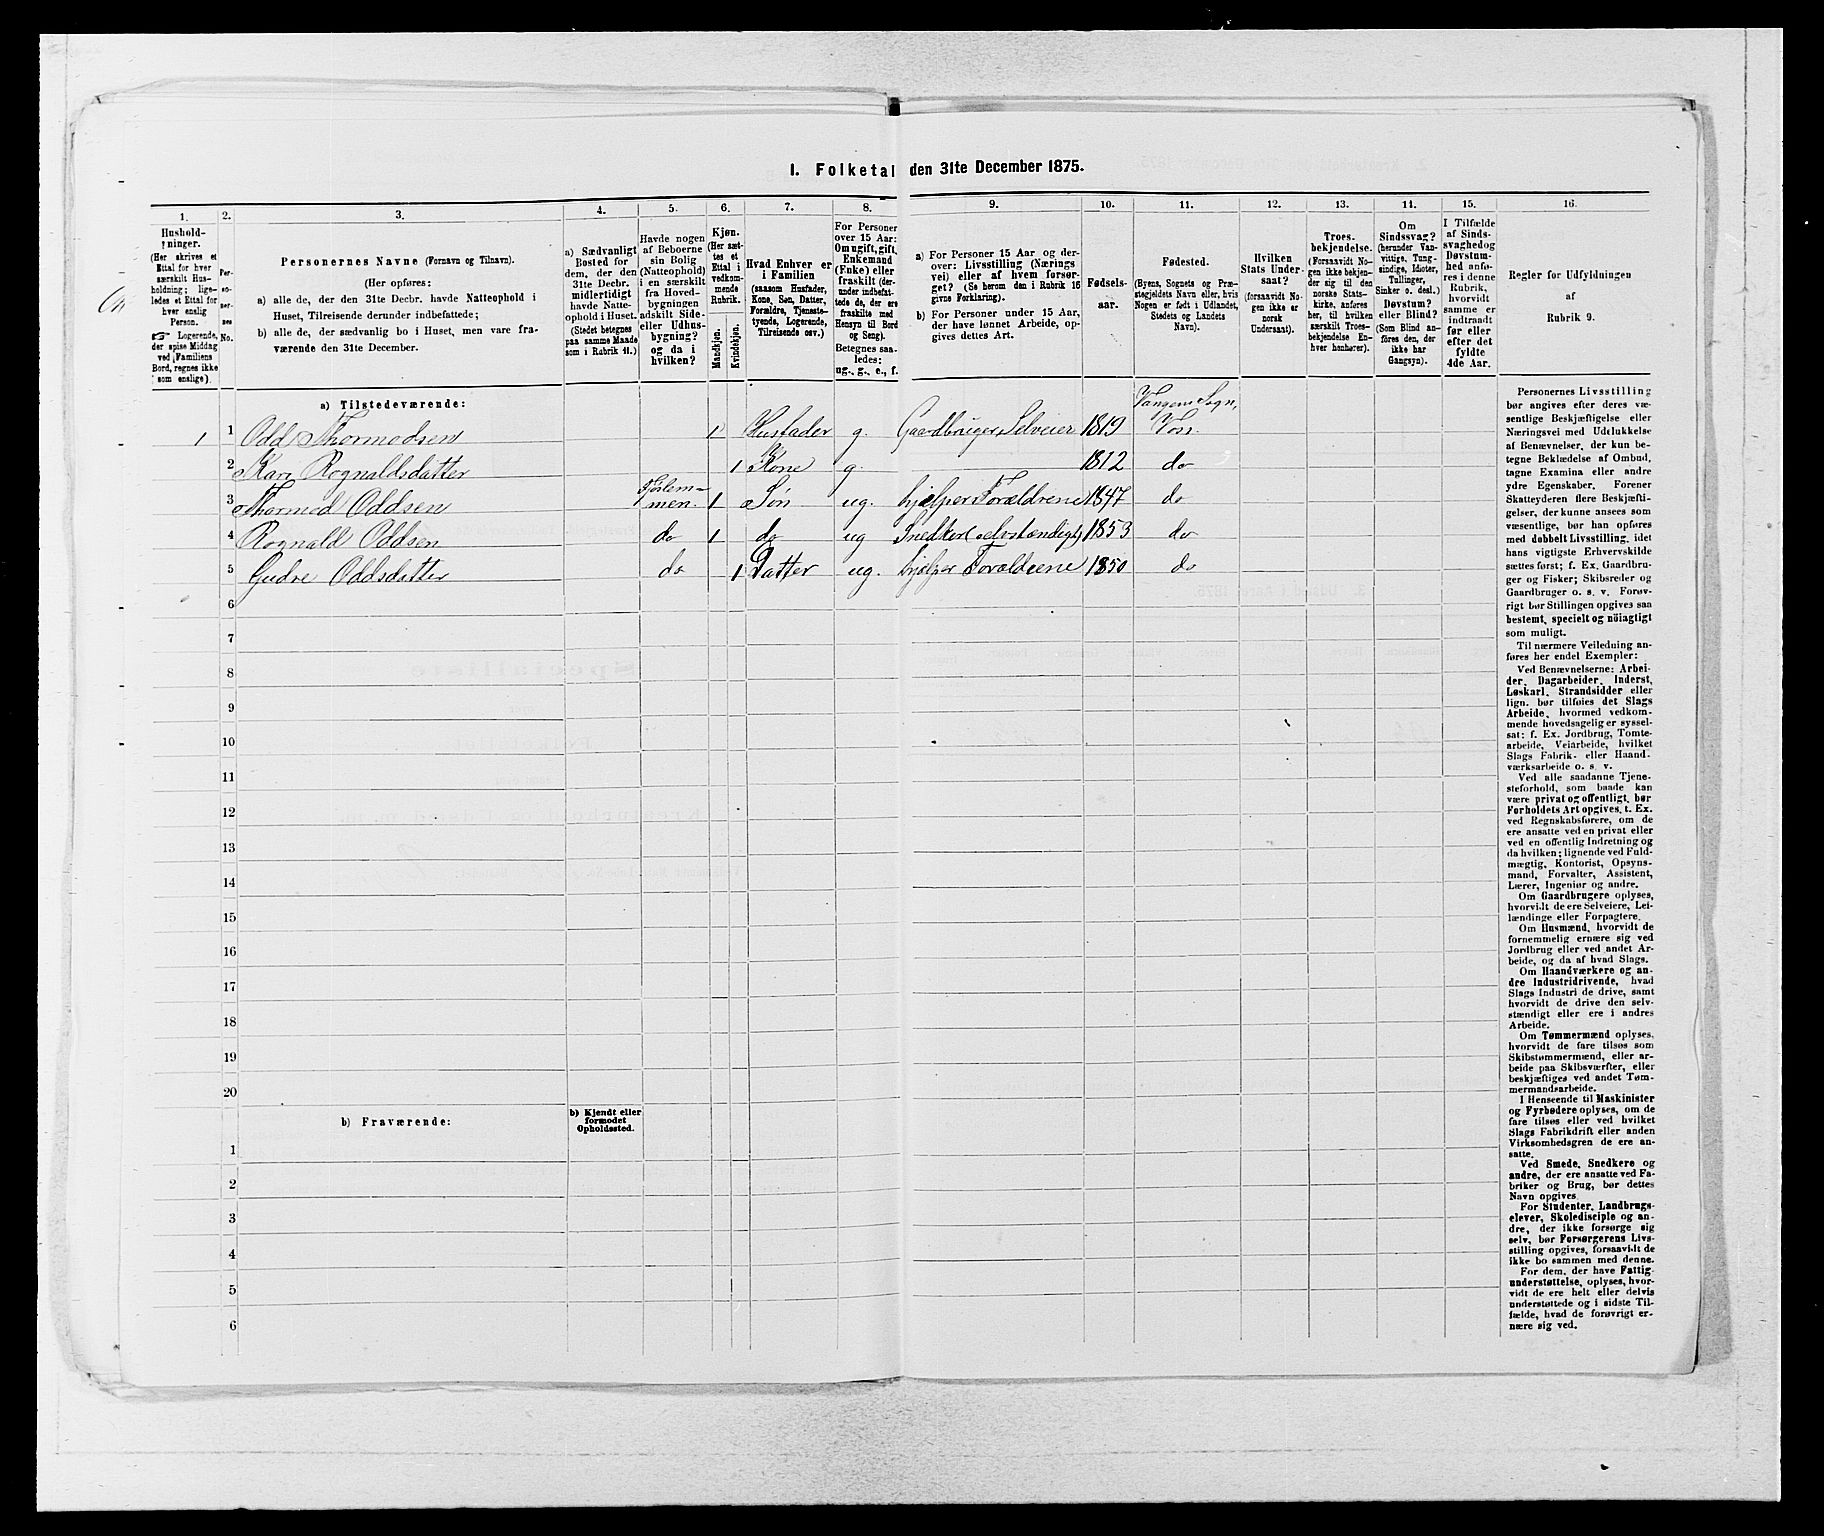 I. Folketal den 31te December 1875.
1.
2.
3.
4.
5.
6.
7.
8.
9.
10.
11.
12.
13.
14.
15.
16.
Hushold-
ninger.
(Her skrives et
Ettal for hver
særskilt Hus-
holdning; lige-
ledes et Ettal for
hver enslig
Person.
☞ Logerende,
der spise Middag
ved Familiens
Bord, regnes ikke
som enslige).
Per-
so-
ner-
nes
No.
Personernes Navne (Fornavn og Tilnavn).
(Her opføres:
a) alle de, der den 31te Decbr. havde Natteophold i
Huset, Tilreisende derunder indbefattede;
b) alle de, der sædvanlig bo i Huset, men vare fra-
værende den 31te December.
a) Sædvanligt
Bosted for
dem, der den
31te Decbr.
midlertidigt
havde Natte-
ophold i Huset.
(Stedet betegnes
paa samme Maade
som i Rubrik 11.)
Havde nogen
af Beboerne
sin Bolig
(Natteophold)
i en særskilt
fra Hoved-
bygningen
adskilt Side-
eller Udhus-
bygning?
og da i
hvilken?
Kjøn.
(Her sæt-
tes et
Ettal i
vedkom-
mende
Rubrik.)
Mandkjøn.
Kvindekjøn.
Hvad Enhver er
i Familien
(saasom Husfader,
Kone, Søn, Datter,
Forældre, Tjeneste-
tyende, Logerende,
Tilreisende osv.)
For Personer
over 15 Aar:
Om ugift, gift,
Enkemand
(Enke) eller
fraskilt (der-
under indbefat-
tede de, der ere
fraskilte med
Hensyn til Bord
og Seng).
Betegnes saa-
ledes:
ug., g., e., f.
a) For Personer 15 Aar og der-
over: Livsstilling (Nærings-
vei) eller af hvem forsør-
get? (Se herom den i Rubrik 16
givne Forklaring).
b) For Personer under 15 Aar,
der have lønnet Arbeide, op-
gives dettes Art.
Fødsels-
aar.
Fødested.
(Byens, Sognets og Præ-
stegjeldets Navn eller, hvis
Nogen er født i Udlandet,
Stedets og Landets
Navn).
Hvilken
Stats Under-
saat?
(forsaavidt No-
gen ikke er
norsk
Undersaat).
Troes-
bekjendelse.
(Forsaavidt No-
gen ikke bekjen-
der sig til den
norske Stats-
kirke, anføres
her, til hvilken
særskilt Troes-
bekjendelse En-
hver henhører).
Om
Sindssvag?
(herunder Van-
vittige, Tung-
sindige, Idioter,
Tullinger,
Sinker o. desl.)
Døvstum?
eller Blind?
(Som Blind an-
føres den, der
ikke har
Gangsyn).
I Tilfælde
af Sinds-
svaghed og
Døvstum-
hed anfø-
res i denne
Rubrik,
hvorvidt
samme er
indtraadt
før eller
efter det
fyldte
4de Aar.
Regler for Udfyldningen
af
Rubrik 9.
a) Tilstedeværende:
Vangens Sogn,
1 1 Odd Thormodsen 1 Husfader g. Gaardbruger, Selveier 1819 Voss.
2 Kari Rognaldsdatter 1 Kone g. 1812 do
3 Thormod Oddsen 1 Søn ug. hjælper Forældrene 1847 do
4 Rognald Oddsen do 1 do ug Snedker (selvstændigt) 1853 do
5 Gudve Oddsdatter do 1 Datter ug. hjælper Forældrene 1850 do
6
7
8
9
10
11
12
13
14
15
16
17
18
19
20
b) Fraværende:
b) Kjendt eller
formodet
Opholdssted.
1
2
3
4
5
6
Personernes Livsstilling
bør angives efter deres væ-
sentlige Beskjæftigelse eller
Næringsvei med Udelukkelse
af Benævnelser, der kun be-
tegne Beklædelse af Ombud,
tagne Examina eller andre
ydre Egenskaber. Forener
Skatteyderen flere Beskjæfti-
gelser, der kunne ansees som
væsentlige, bør han opføres
med dobbelt Livsstilling, idet
hans vigtigste Erhvervskilde
sættes først; f. Ex. Gaardbru-
ger og Fisker; Skibsreder og
Gaardbruger o. s. v. Forøv-
rigt bør Stillingen opgives saa
bestemt, specielt og nöiagtigt
som muligt.
Til nærmere Veiledning an-
føres her endel Exempler:
Ved Benævnelserne: Arbei-
der, Dagarbeider, Inderst,
Løskarl, Strandsidder eller
lign. bør tilføies det Slags
Arbeide, hvormed vedkom-
mende hovedsagelig er syssel-
sat; f. Ex. Jordbrug, Tomte-
arbeide, Veiarbeide, hvilket
Slags Fabrik- eller Haand-
værksarbeide o. s. v.
Ved alle saadanne Tjene-
steforhold, som baade kan
være privat og offentligt, bør
Forholdets Art opgives, t. Ex.
ved Regnskabsførere, om de
ere ansatte ved en privat eller
ved en offentlig Indretning og
da hvilken; lignende ved Fuld-
mægtig, Kontorist, Opsyns-
mand, Forvalter, Assistent,
Lærer, Ingeniør og andre.
Om Gaardbrugere oplyses,
hvorvidt de ere Selveiere, Lei-
lændinge eller Forpagtere.
Om Husmænd, hvorvidt de
fornemmelig ernære sig ved
Jordbrug eller ved andet Ar-
beide, og da af hvad Slags.
Om Haandværkere og an-
dre Industridrivende, hvad
Slags Industri de drive, samt
hvorvidt de drive den selv-
stændigt eller ere i andres
Arbeide.
Om Tømmermænd oplyses,
hvorvidt de fare tilsøs som
Skibstømmermænd, eller ar-
beide paa Skibsværfter, eller
beskjæftiges ved andet Tøm-
mermandsarbeide.
I Henseende til Maskinister
og Fyrbødere oplyses, om de
fare tilsøs eller ved hvilket
Slags Fabrikdrift eller anden
Virksomhedsgren de ere an-
satte.
Ved Smede, Snedkere og
andre, der ere ansatte ved Fa-
briker og Brug, bør dettes
Navn opgives.
For Studenter, Landbrugs-
elever, Skoledisciple og an-
dre, der ikke forsørge sig
selv, bør Forsørgerens Livs-
stilling opgives, forsaavidt de
ikke bo sammen med denne.
For dem, der have Fattig-
understøttelse, oplyses, hvor-
vidt de ere helt eller delvis
understøttede og i sidste Til-
fælde, hvad de forøvrigt er-
nære sig ved.